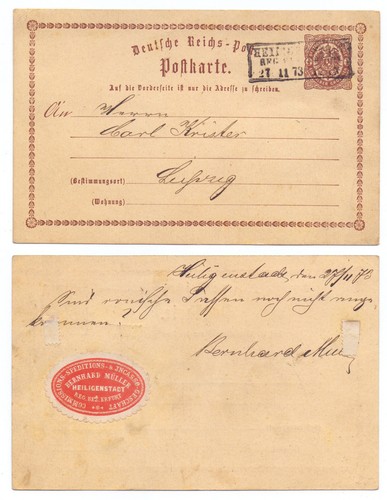 Deutsche Reichs-Po
Postkarte.
HEILI
REG.
27 11 73
Auf die Vorderseite ist nur die Adresse zu schreiben.
An Herrn
Carl Krister
(Bestimmungsort) Leipzig
(Wohnung)
Heiligenstadt, den 27/11 73
Sind
noch nicht ange
kommen.
Bernhard Müller
COMMISSIONS-SPEDITIONS-& INCASSO-GESCHÄFT
BERNHARD MÜLLER
HEILIGENSTADT
REG. BEZ. ERFURT